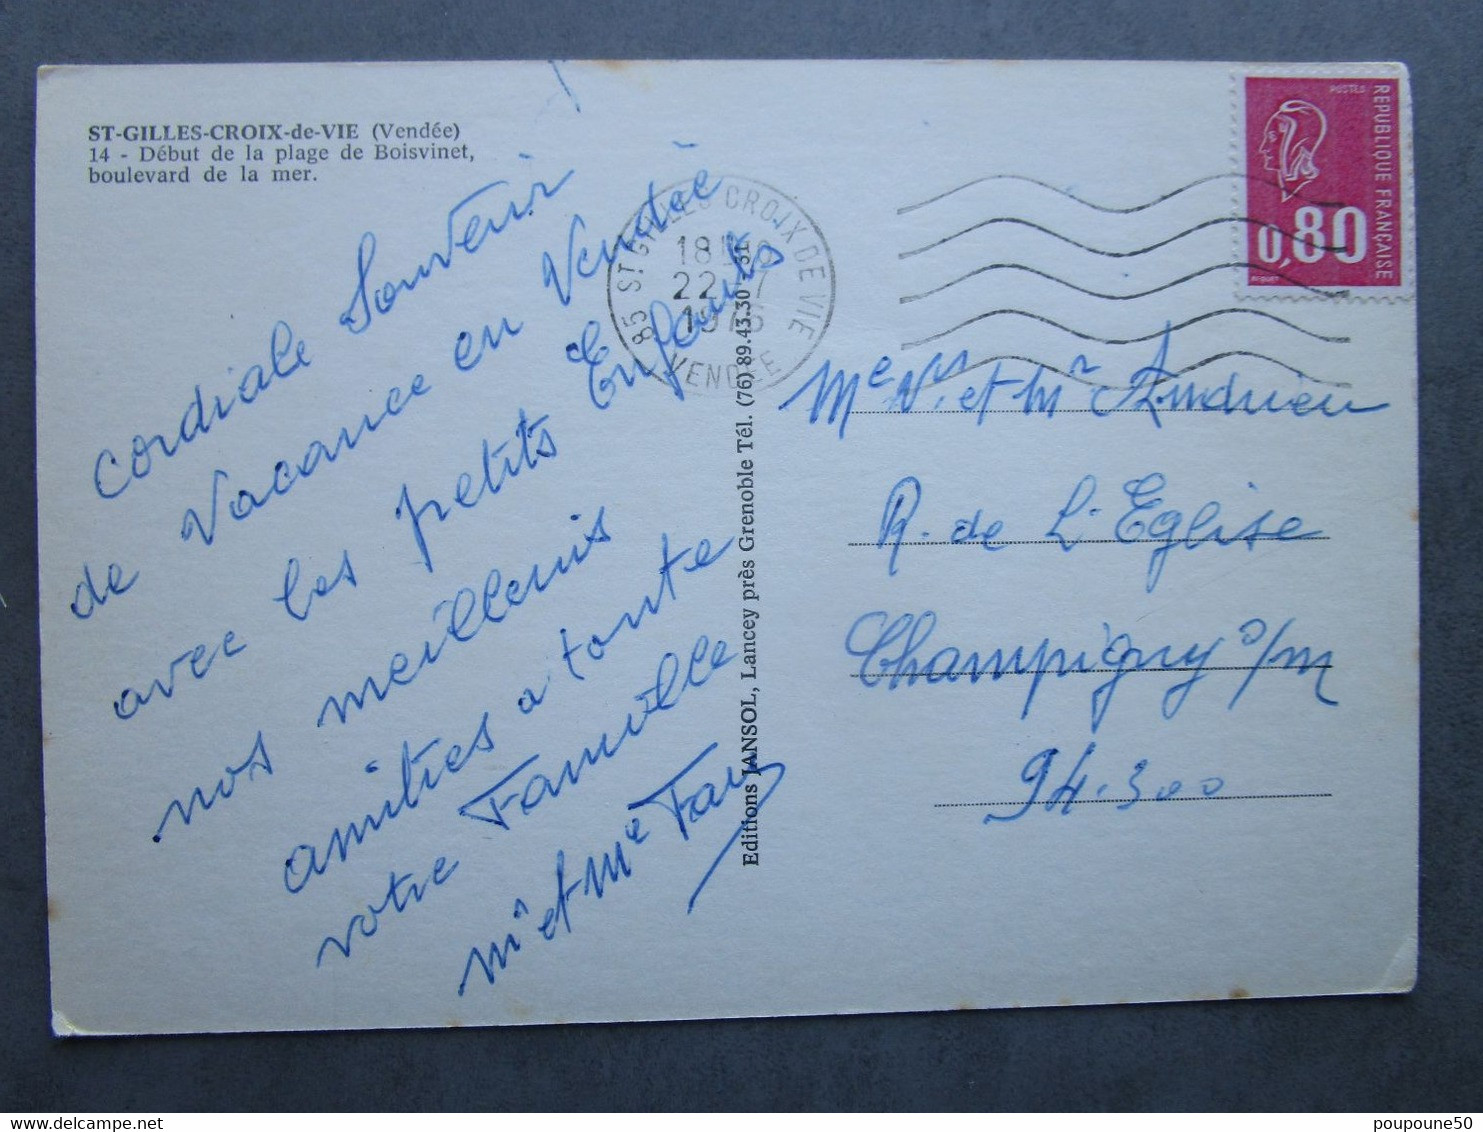 ST-GILLES-CROIX-de-VIE (Vendée)
14 - Début de la plage de Boisvinet,
boulevard de la mer.
Cordiale Souvenir
de Vacance en Vendée
avec les petits Enfants
nos meilleurs
amities a toute
votre Famille
mr et Me
85 ST GILLES CROIX DE VIE
18H
22 7
VENDEE
Editions JANSOL, Lancey près Grenoble Tél. (76) 89.43.30
POSTES
REPUBLIQUE FRANÇAISE
0,80
Me Vve et Mr Andrieu
R. de L'Eglise
Champigny s/m
94.300
poupoune50